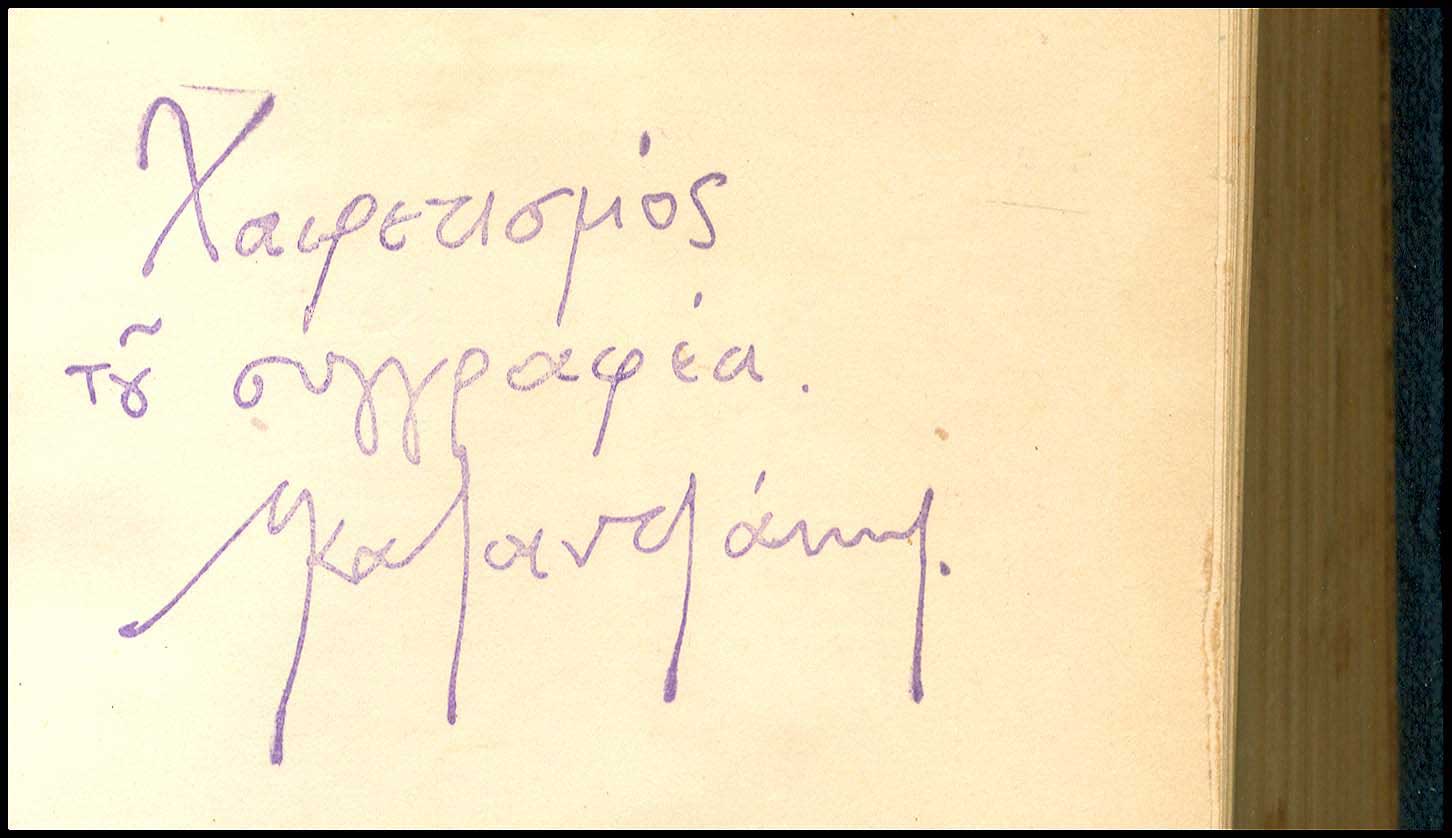 Χαιρετισμός
τοῦ συγγραφέα.
Ν Καζαντζάκης.